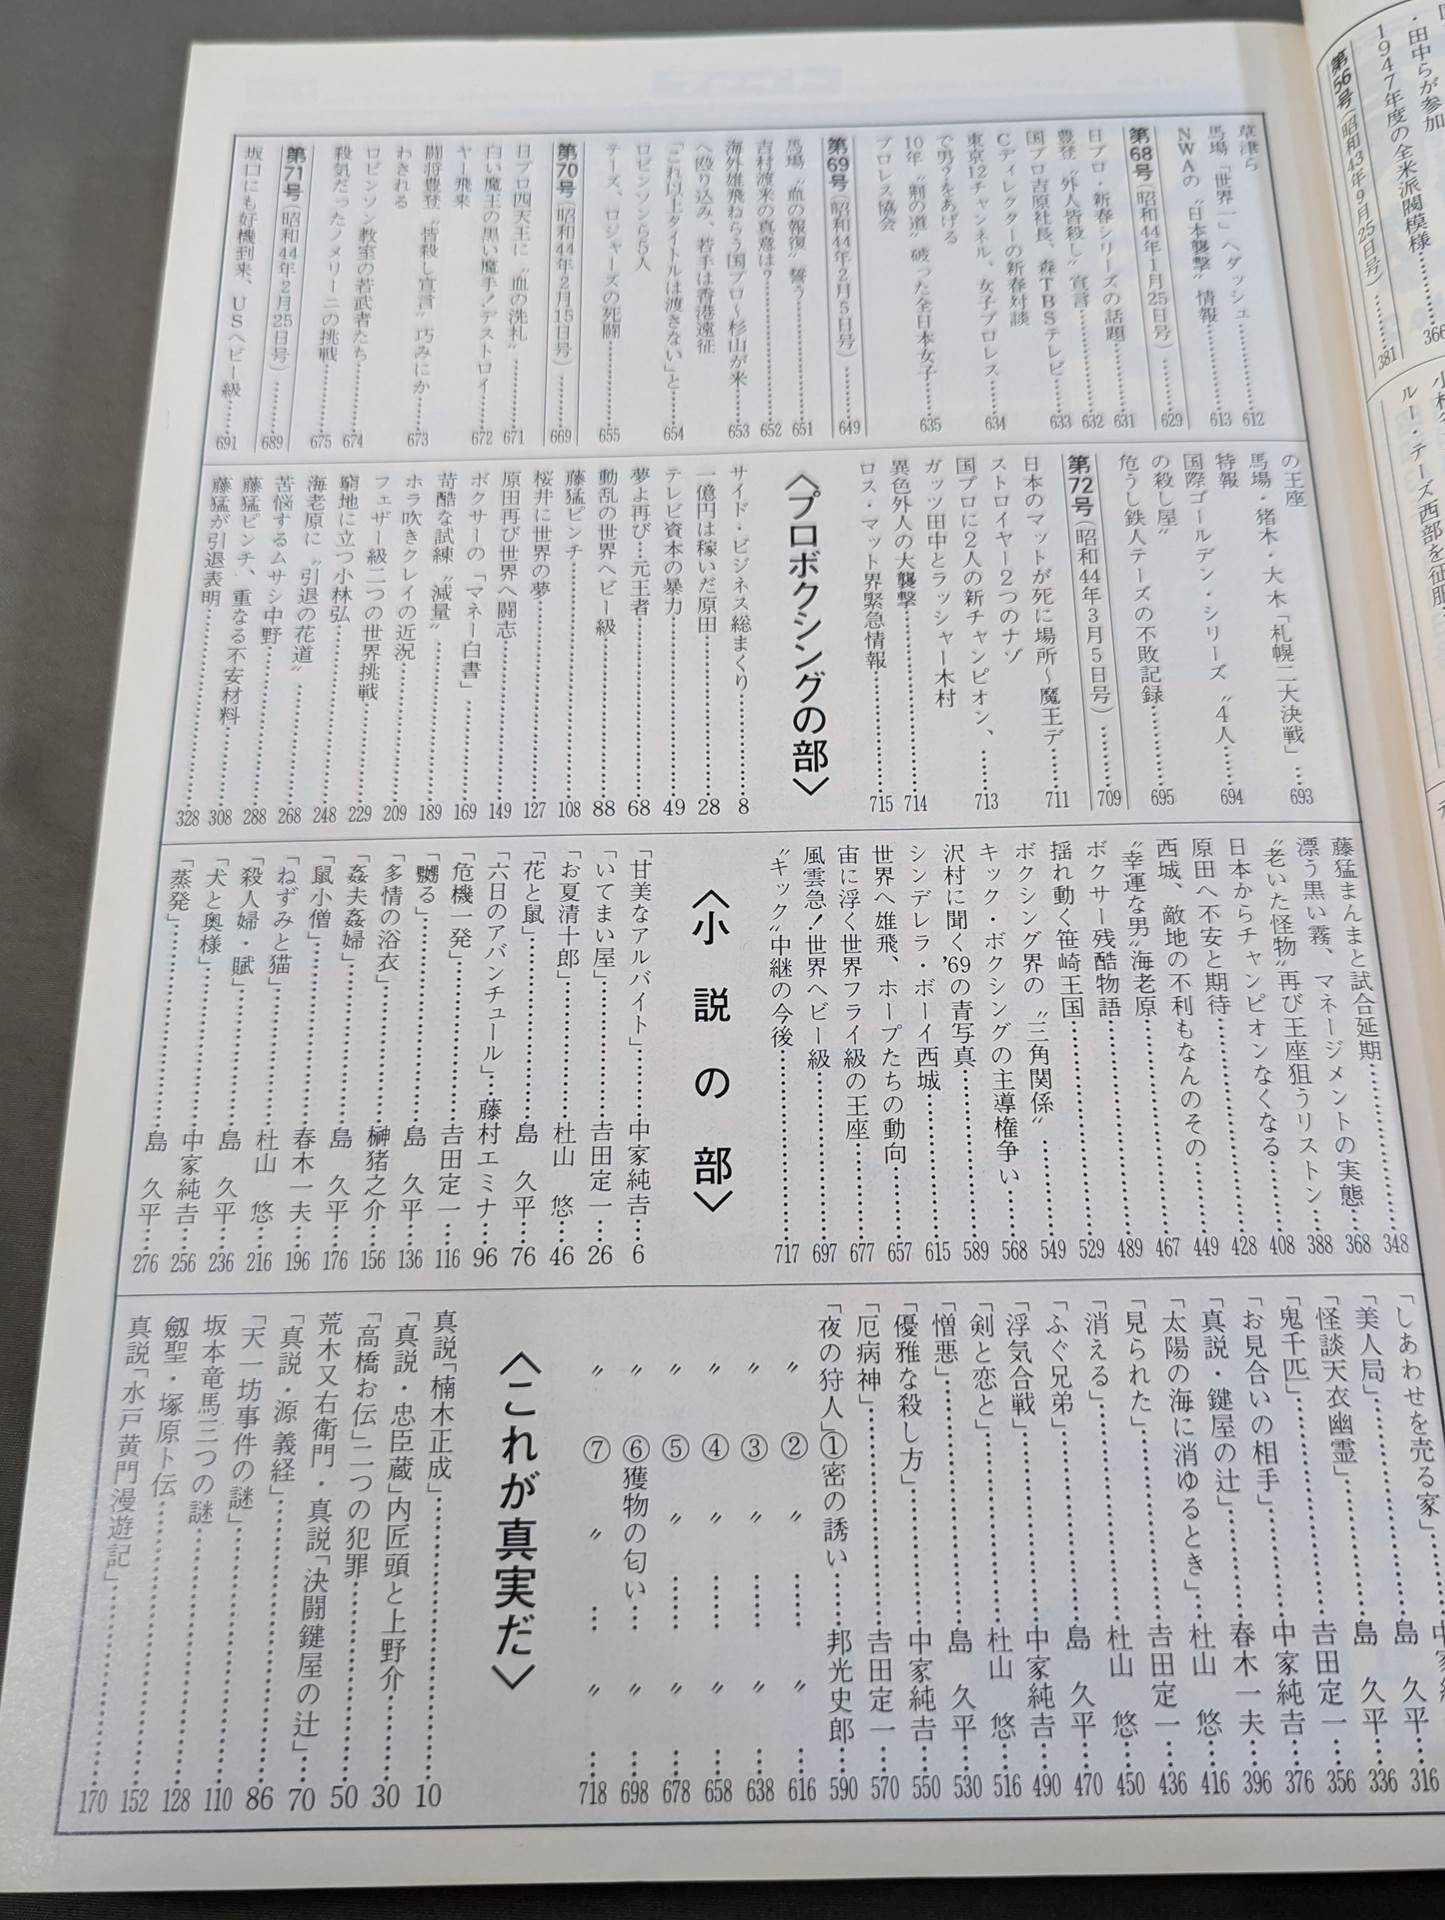 草津ら
馬場「世界一」へダッシュ……613 612
NWAの〝日本襲撃〟情報……613
第68号（昭和44年1月25日号）……629
日プロ・新春シリーズの話題……631
豊登〝外人皆殺し〟宣言……632
国プロ吉原社長、森TBSテレビ……633
Cディレクターの新春対談
東京12チャンネル、女子プロレス……634
で男?をあげる
10年〝荊の道〟破った全日本女子……635
プロレス協会
第69号（昭和44年2月5日号）……649
馬場〝血の報復〟誓う……651
吉村渡来の真意は?……652
海外雄飛ねらう国プロ～杉山が米……653
へ殴り込み、若手は香港遠征
「これ以上タイトルは渡さない」と……654
ロビンソンら5人
テーズ、ロジャーズの死闘……655
第70号（昭和44年2月15日号）……669
日プロ四天王に〝血の洗礼〟……671
白い魔王の黒い魔手!デストロイ……672
ヤー飛来
闘将豊登〝皆殺し宣言〟巧みにか……673
わされる
ロビンソン教室の若武者たち……674
殺気だったノメリーニの挑戦……675
第71号（昭和44年2月25日号）……689
坂口にも好機到来、USヘビー級……691
の王座
馬場・猪木・大木「札幌二大決戦」…693
特報
国際ゴールデン・シリーズ〝4人……694
の殺し屋〟
危うし鉄人テーズの不敗記録……695
第72号（昭和44年3月5日号）……709
日本のマットが死に場所～魔王デ……711
ストロイヤー2つのナゾ
国プロに2人の新チャンピオン、……713
ガッツ田中とラッシャー木村
異色外人の大襲撃……714
ロス・マット界緊急情報……715
〈プロボクシングの部〉
サイド・ビジネス総まくり……8
一億円は稼いだ原田……28
テレビ資本の暴力……49
夢よ再び…元王者……68
動乱の世界ヘビー級……88
藤猛ピンチ……108
桜井に世界の夢……127
原田再び世界へ闘志……149
ボクサーの「マネー白書」……169
苛酷な試練〝減量〟……189
ホラ吹きクレイの近況……209
フェザー級二つの世界挑戦……229
窮地に立つ小林弘……248
海老原に〝引退の花道〟……268
苦悩するムサシ中野……288
藤猛ピンチ、重なる不安材料……308
藤猛が引退表明……328
藤猛まんまと試合延期……348
漂う黒い霧、マネージメントの実態…368
〝老いた怪物〟再び王座狙うリストン…388
日本からチャンピオンなくなる……408
原田へ不安と期待……428
西城、敵地の不利もなんのその……449
〝幸運な男〟海老原……467
ボクサー残酷物語……489
揺れ動く笹崎王国……529
ボクシング界の〝三角関係〟……549
キック・ボクシングの主導権争い……568
沢村に聞く'69の青写真……589
シンデレラ・ボーイ西城……615
世界へ雄飛、ホープたちの動向……657
宙に浮く世界フライ級の王座……677
風雲急!世界ヘビー級……697
〝キック〟中継の今後……717
〈小説の部〉
「甘美なアルバイト」……中家純吉…6
「いてまい屋」……吉田定一…26
「お夏清十郎」……杜山 悠…46
「花と鼠」……島 久平…76
「六日のアバンチュール」…藤村エミナ…96
「危機一発」……吉田定一…116
「嬲る」……島 久平…136
「多情の浴衣」……榊猪之介…156
「姦夫姦婦」……島 久平…176
「鼠小僧」……春木一夫…196
「ねずみと猫」……杜山 悠…216
「殺人婦・賦」……島 久平…236
「犬と奥様」……中家純吉…256
「蒸発」……島 久平…276
「しあわせを売る家」……島 久平…316
「美人局」……島 久平…336
「怪談天衣幽霊」……吉田定一…356
「鬼千匹」……中家純吉…376
「お見合いの相手」……春木一夫…396
「真説・鍵屋の辻」……杜山 悠…416
「太陽の海に消ゆるとき」…吉田定一…436
「見られた」……杜山 悠…450
「消える」……島 久平…470
「ふぐ兄弟」……中家純吉…490
「浮気合戦」……杜山 悠…516
「剣と恋と」……島 久平…530
「憎悪」……中家純吉…550
「優雅な殺し方」……吉田定一…570
「厄病神」
「夜の狩人」①密の誘い……邦光史郎…590
〃 ② 〃 …… 〃 …616
〃 ③ 〃 …… 〃 …638
〃 ④ 〃 …… 〃 …658
〃 ⑤ 〃 …… 〃 …678
〃 ⑥獲物の匂い… 〃 …698
〃 ⑦ 〃 … 〃 …718
〈これが真実だ〉
真説「楠木正成」……10
「真説・忠臣蔵」内匠頭と上野介……30
「高橋お伝」二つの犯罪……50
荒木又右衛門・真説「決闘鍵屋の辻」…70
「真説・源義経」……86
「天一坊事件の謎」……110
坂本竜馬三つの謎……128
剱聖・塚原卜伝……152
真説「水戸黄門漫遊記」……170
・田中らが参加
1947年度の全米派閥模様……366
第56号（昭和43年9月25日号）……381
ルー・テーズ西部を征服